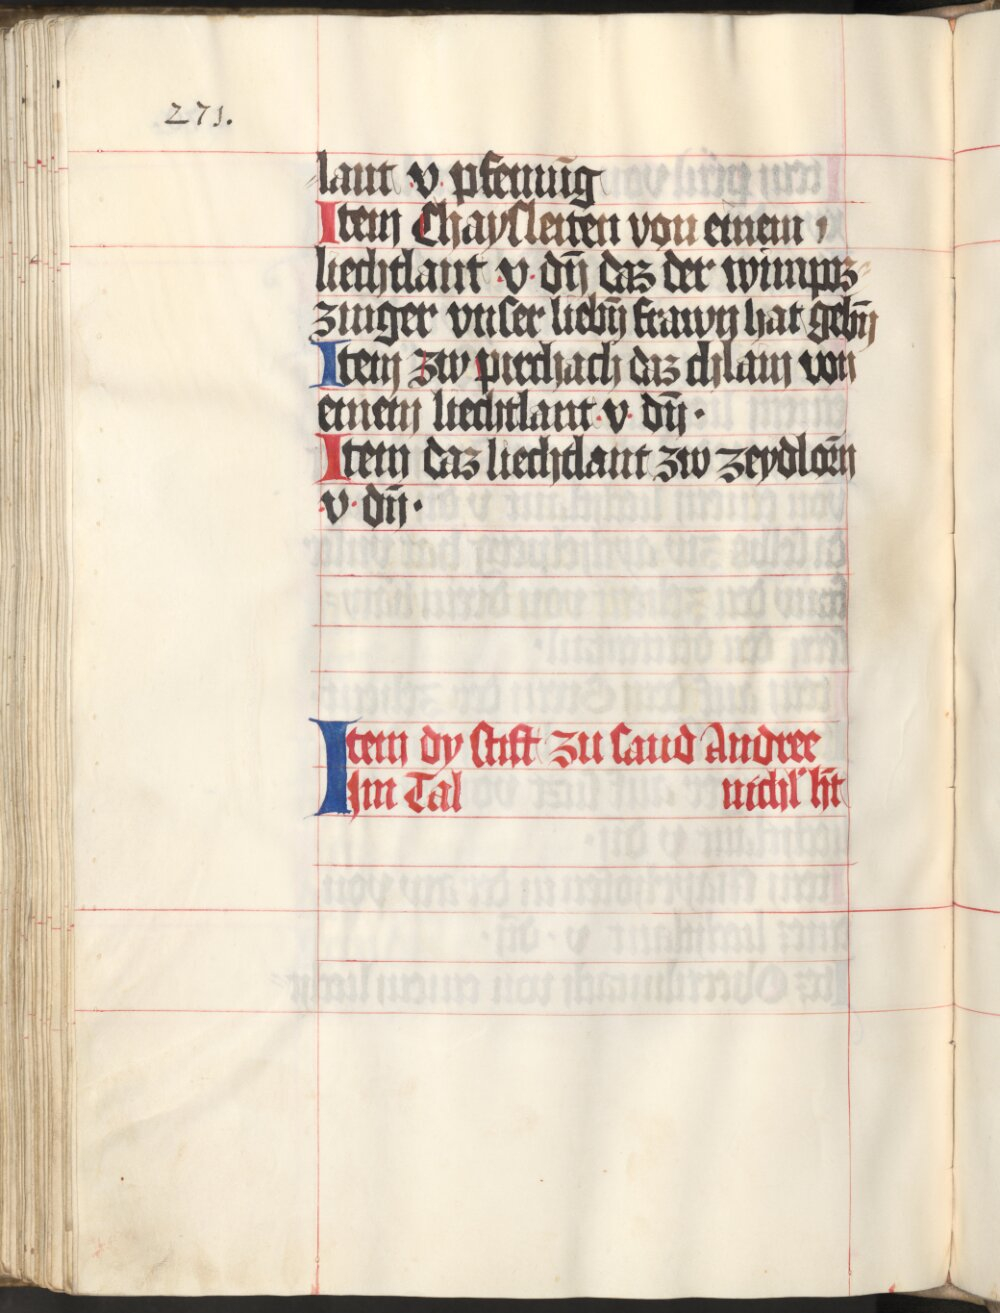 271.
lant ·v· pfenniḡ
Item Chaysleiten von einem
liechtlant ·v· dn̄ daz der wimpss-
zinger vnser liebn̄ frawn hat gebn̄
Item zw pirchach daz chlain von
einem liechtlant ·v· dn̄ ·
Item daz liechtlant zw zeydlorn̄
·v· dn̄ ·
Item dy stift zu sand Andree
Im Tal nichil hn̄t